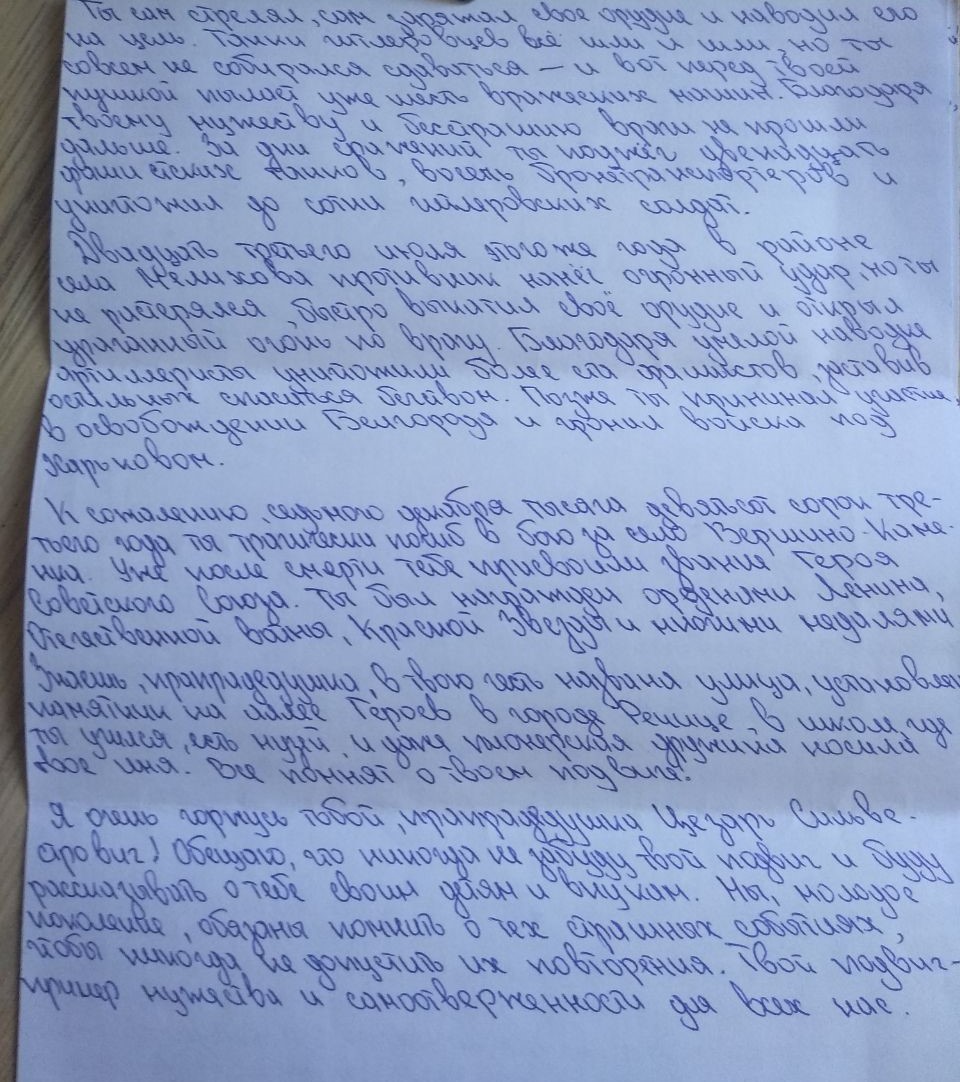 Ты сам стрелял, сам заряжал свое орудие и наводил его
на цель. Танки гитлеровцев всё шли и шли, но ты
совсем не собирался сдаваться – и вот перед твоей
пушкой пылает уже шесть вражеских машин. Благодаря
твоему мужеству и бесстрашию враги не прошли
дальше. За дни сражений ты поджёг двенадцать
фашистских танков, восемь бронетранспортеров и
уничтожил до сотни гитлеровских солдат.
Двадцать третьего июля этого же года в районе
села Мелихова противник нанёс огромный удар, но ты
не растерялся, быстро выкатил своё орудие и открыл
ураганный огонь по врагу. Благодаря умелой наводке
артиллеристы уничтожили более ста фашистов, заставив
остальных спасаться бегством. Позже ты принимал участие
в освобождении Белгорода и громил войска под
Харьковом.
К сожалению, седьмого декабря тысяча девятьсот сорок тре-
тьего года ты трагически погиб в бою за село Вершино-Каме-
нка. Уже после смерти тебе присвоили звание Героя
Советского Союза. Ты был награжден орденами Ленина,
Отечественной войны, Красной Звезды и многими медалями
Знаешь, прапрадедушка, в твою честь названа улица, установлен
памятник на аллее Героев в городе Речице, в школе, где
ты учился, есть музей и даже пионерская дружина носила
твое имя. Все помнят о твоем подвиге!
Я очень горжусь тобой, прапрадедушка Цезарь Сильве-
стрович! Обещаю, что никогда не забуду твой подвиг и буду
рассказывать о тебе своим детям и внукам. Мы, молодое
поколение, обязаны помнить о тех страшных событиях,
чтобы никогда не допустить их повторения. Твой подвиг –
пример мужества и самоотверженности для всех нас.